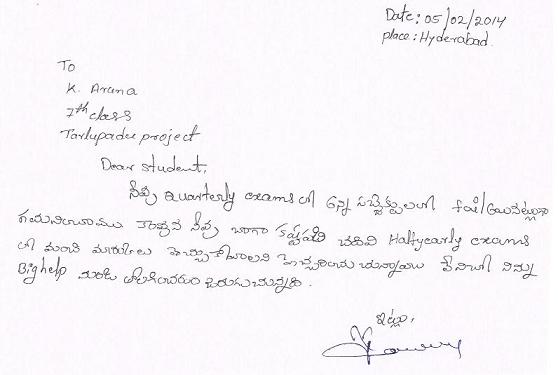 Date: 05/02/2014
place: Hyderabad.
To
K. Aruna
7th class
Tarlupadu project
Dear student,
నీవు quarterly exams లో 6న్ని సబ్జెక్టులలో fail
గమనించాము కావున నీవు బాగా కష్టపడి చదివి Halfyearly exams
లో మంచి మార్కులు తెచ్చుకోవాలని హెచ్చరించు చున్నాము లేనిచో నిన్ను
Bighelp నుండి తొలగించడం జరుగుచున్నది.
ఇట్లు,